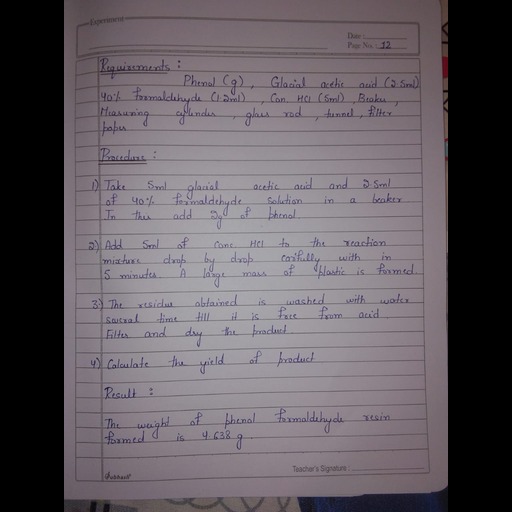 Experiment
Date :
Page No. : 12
Requirements :
Phenol (g) , Glacial acetic acid (2.5ml)
40% Formaldehyde (1.2ml) , Con. HCl (5ml) , Beaker ,
Measuring cylender , glass rod , funnel , filter
paper
Procedure :
1) Take 5ml glacial acetic acid and 2.5ml
of 40% formaldehyde solution in a beaker
In this add 2g of phenol.
2) Add 5ml of Conc. HCl to the reaction
mixture drop by drop carifully with in
5 minutes. A large mass of plastic is formed.
3) The residue obtained is washed with water
saveral time till it is free from acid.
Filter and dry the product
4) Calculate the yield of product
Result :
The weight of phenol formaldehyde resin
formed is 4.638 g.
Teacher's Signature :